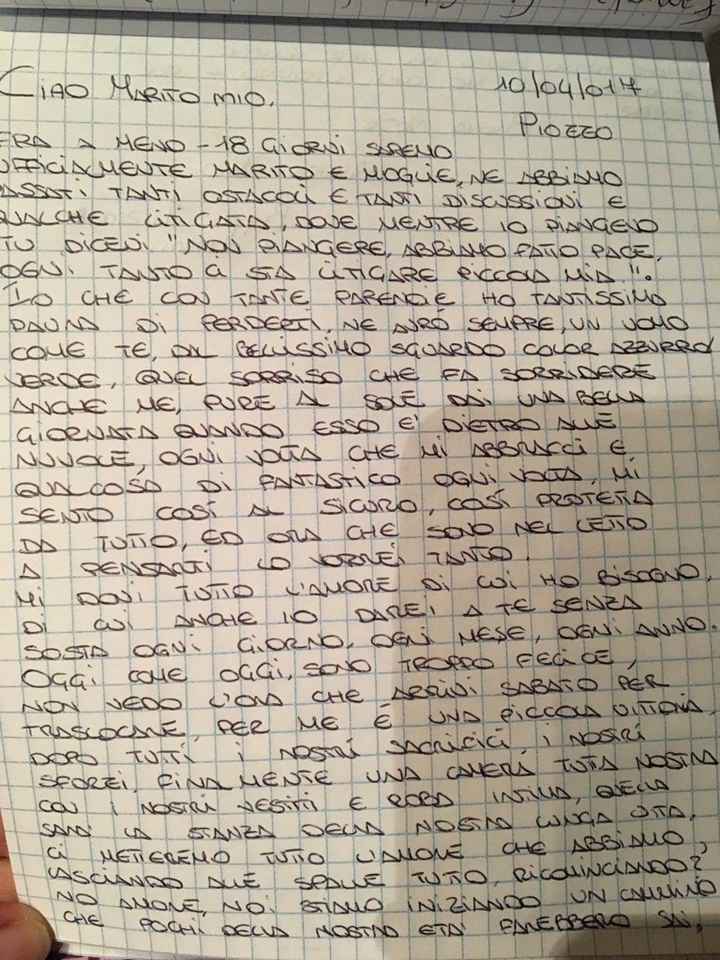 CIAO MARITO MIO.
10/04/017
PIOZZO
FRA A MENO -18 GIORNI SAREMO
UFFICIALMENTE MARITO E MOGLIE, NE ABBIAMO
PASSATI TANTI OSTACOLI E TANTI DISCUSSIONI E
QUALCHE LITIGATA, DOVE MENTRE IO PIANGEVO
TU DICEVI "NON PIANGERE, ABBIAMO FATTO PACE,
OGNI TANTO CI STA LITIGARE PICCOLA MIA".
IO CHE CON TANTE PARENOIE HO TANTISSIMO
PAURA DI PERDERTI, NE AVRÒ SEMPRE, UN UOMO
COME TE, DAL BELLISSIMO SGUARDO COLOR AZZURRO/
VERDE, QUEL SORRISO CHE FA SORRIDERE
ANCHE ME, PURE AL SOLE DAI UNA BELLA
GIORNATA QUANDO ESSO E' DIETRO ALLE
NUVOLE, OGNI VOLTA CHE MI ABBRACCI E
QUALCOSA DI FANTASTICO OGNI VOLTA, MI
SENTO COSÌ AL SICURO, COSÌ PROTETTA
DA TUTTO, ED ORA CHE SONO NEL LETTO
A PENSARTI LO VORREI TANTO.
MI DONI TUTTO L'AMORE DI CUI HO BISOGNO,
DI CUI ANCHE IO DAREI A TE SENZA
SOSTA OGNI GIORNO, OGNI MESE, OGNI ANNO.
OGGI COME OGGI, SONO TROPPO FELICE,
NON VEDO L'ORA CHE ARRIVI SABATO PER
TRASLOCARE, PER ME È UNA PICCOLA VITTORIA,
DOPO TUTTI I NOSTRI SACRIFICI, I NOSTRI
SFORZI, FINALMENTE UNA CAMERA TUTTA NOSTRA
CON I NOSTRI VESTITI E ROBA INTIMA, QUELLA
SARÀ LA STANZA DELLA NOSTRA LUNGA VITA,
CI METTEREMO TUTTO L'AMORE CHE ABBIAMO,
LASCIANDO ALLE SPALLE TUTTO, RICOMINCIANDO?
NO AMORE, NOI STIAMO INIZIANDO UN CAMMINO
CHE POCHI DELLA NOSTRA ETÀ FAREBBERO SAI,